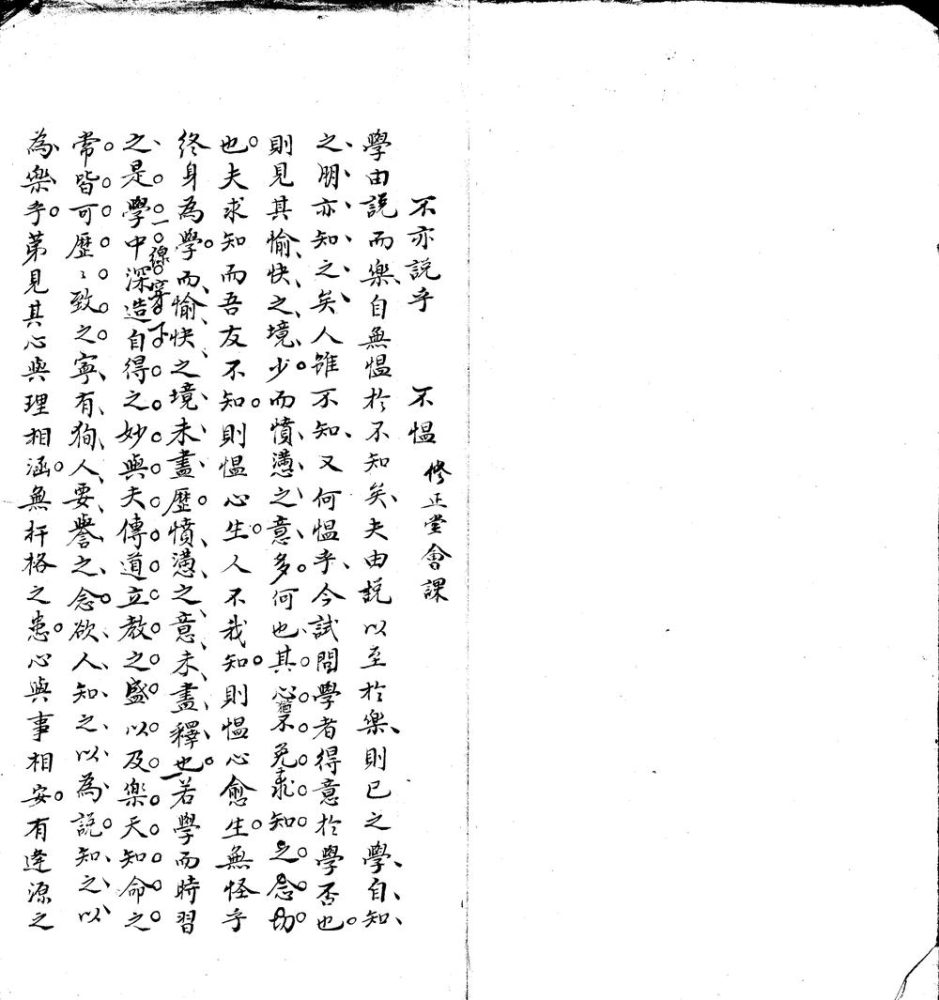 不亦説乎　不慍　修正堂會課
學由説而樂自無慍於不知矣夫由説以至於樂則已之學自知
之朋亦知之矣人雖不知又何慍乎今試問學者得意於學否也
則見其愉快之境少而憤懣之意多何也其心不免求知之念切
也夫求知而吾友不知則慍心生人不我知則慍心愈生無怪乎
終身為學而愉快之境未盡歷憤懣之意未盡釋也若學而時習
一線穿下
之是學中深造自得之妙與夫傳道立教之盛以及樂天知命之
常皆可歷〻致之寧有狥人要譽之念欲人知之以為説知之以
為樂乎第見其心與理相涵無扞格之患心與事相安有逢源之